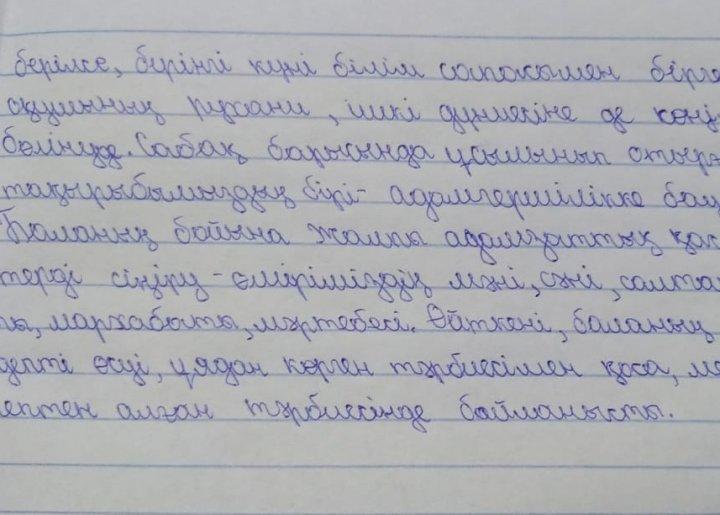 берілсе, бүгінгі күні білім сапасымен бірге
оқушының рухани, ішкі дүниесіне де көңі
бөлінуде. Сабақ барысында ұсынылып отырға
тақырыбымыздың бірі- адамгершілікке бау
Баланың бойына жалпы адамзаттық қас
терді сіңіру - өміріміздің мәні, сәні, салта
ты, мархабаты, мәртебесі. Өйткені, баланың
депті өсуі, ұядан көрген тәрбиесімен қоса, ме
ептен алған тәрбиесінде байланысты.